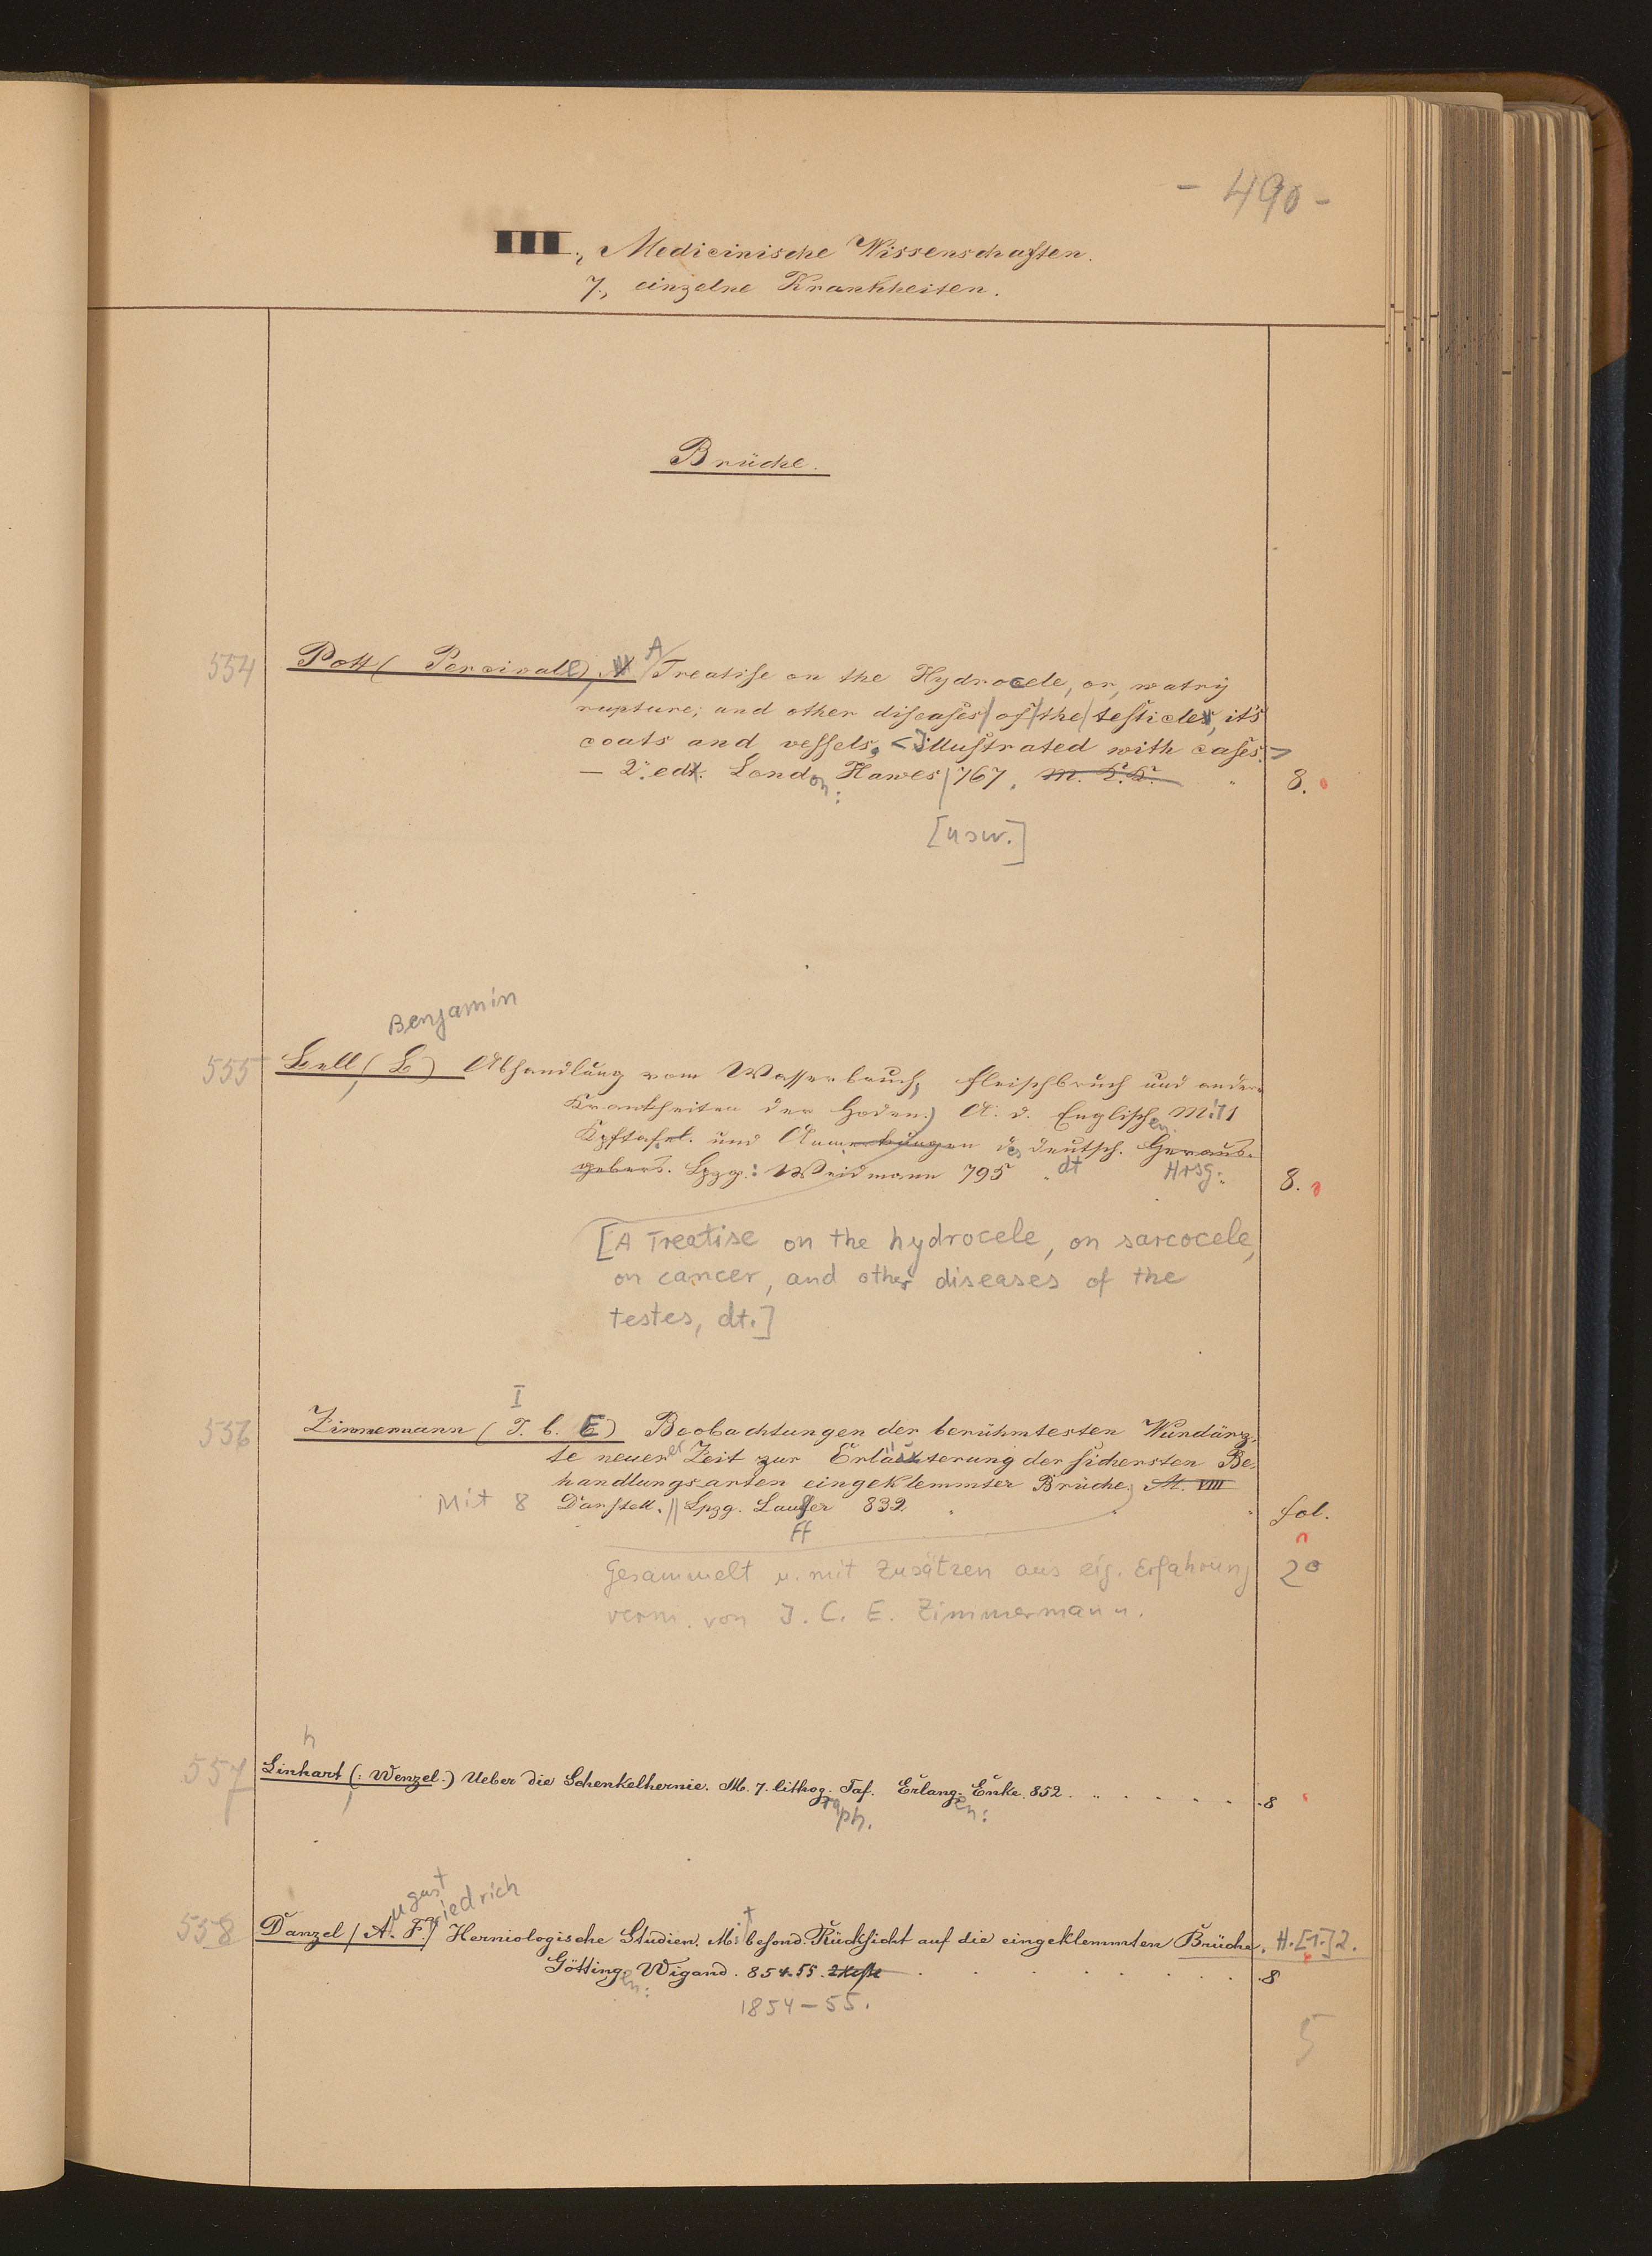 - 490 -
III., Medicinische Wissenschaften.
7., einzelne Krankheiten.
Brüche.
A
554 Pott ( Percivall), Treatise on the Hydrocele, or, watry
rupture; and other diseases/ of/ the/ testicle, it's
coats and vessels. <Illustrated with cases.>
— 2. ed. London: Hawes/ 767. 8.
[usw.]
Benjamin
555 Bell ( B) Abhandlung vom Wasserbruch, Fleischbruch und andern
Krankheiten der Hoden.) A. d. Englischen. Mit 1
Kpftafel. und Anmerkungen des deutsch. Heraus-
gebers. Lpzg.: Weidmann 795 dt Hrsg. 8.
[A Treatise on the hydrocele, on sarcocele,
on cancer, and other diseases of the
testes, dt.]
I
556 Zimmermann ( E) Beobachtungen der berühmtesten Wundärz-
te neuerer Zeit zur Erläuterung der sichersten Be-
handlungsarten eingeklemmter Brüche.) M. VIII
Mit 8 Darstell. // Lpzg. Lauffer 832. fol.
ff
Gesammelt u. mit Zusätzen aus eig. Erfahrung 2°
verm. von J. C. E. Zimmermann.
h
557 Linhart (: Wenzel.) Ueber die Schenkelhernie. M. 7. lithog. Taf. Erlang. Enke. 852. 8
raph. en:
ugust riedrich
558 Danzel / A. F. / Herniologische Studien. Mit besond. Rücksicht auf die eingeklemmten Brüche. H. [1.] 2.
Götting. Wigand. 854-55. 2 Hefte 8
en:
1854-55.
5